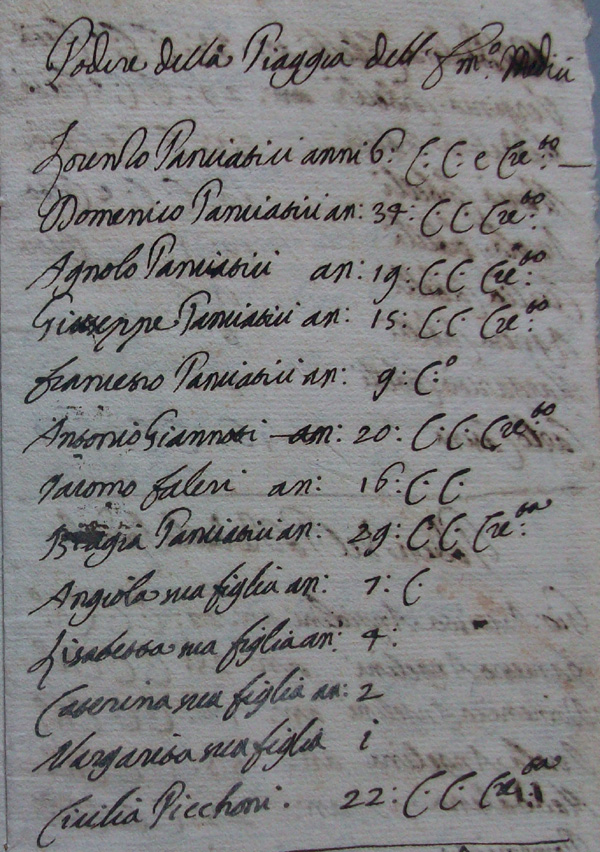 Podere della Piaggia dell' Jmo: Medici
Lorenzo Panciatici anni 6: C: C: e Cre:to
Domenico Panciatici an: 34: C: C: Cre:to
Agnolo Panciatici an: 19: C: C: Cre:to
Giuseppe Panciatici an: 15: C: C: Cre:to
francesco Panciatici an: 9: C:o
Antonio Giannoti an: 20: C: C: Cre:to
Jacomo faleri an: 16: C: C:
Biagia Panciatici an: 29: C: C: Cre:ta
Angiola sua figlia an: 7: C:
Lisabetta sua figlia an: 4:
Caterina sua figlia an: 2
Margarita sua figlia i
Cicilia Picchoni. 22: C: C: Cre:ta